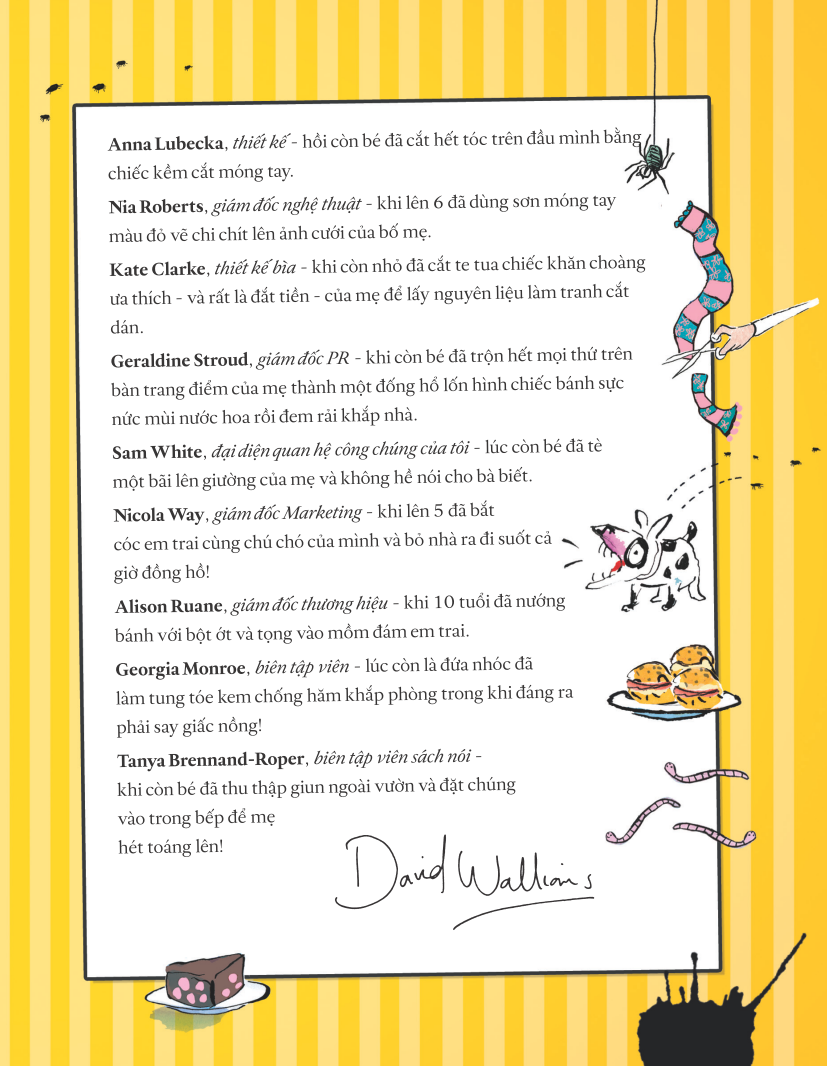 Anna Lubecka, thiết kế - hồi còn bé đã cắt hết tóc trên đầu mình bằng
chiếc kềm cắt móng tay.
Nia Roberts, giám đốc nghệ thuật - khi lên 6 đã dùng sơn móng tay
màu đỏ vẽ chi chít lên ảnh cưới của bố mẹ.
Kate Clarke, thiết kế bìa - khi còn nhỏ đã cắt te tua chiếc khăn choàng
ưa thích - và rất là đắt tiền - của mẹ để lấy nguyên liệu làm tranh cắt
dán.
Geraldine Stroud, giám đốc PR - khi còn bé đã trộn hết mọi thứ trên
bàn trang điểm của mẹ thành một đống hổ lốn hình chiếc bánh sực
nức mùi nước hoa rồi đem rải khắp nhà.
Sam White, đại diện quan hệ công chúng của tôi - lúc còn bé đã tè
một bãi lên giường của mẹ và không hề nói cho bà biết.
Nicola Way, giám đốc Marketing - khi lên 5 đã bắt
cóc em trai cùng chú chó của mình và bỏ nhà ra đi suốt cả
giờ đồng hồ!
Alison Ruane, giám đốc thương hiệu - khi 10 tuổi đã nướng
bánh với bột ớt và tọng vào mồm đám em trai.
Georgia Monroe, biên tập viên - lúc còn là đứa nhóc đã
làm tung tóe kem chống hăm khắp phòng trong khi đáng ra
phải say giấc nồng!
Tanya Brennand-Roper, biên tập viên sách nói -
khi còn bé đã thu thập giun ngoài vườn và đặt chúng
vào trong bếp để mẹ
hét toáng lên!
David Walliams